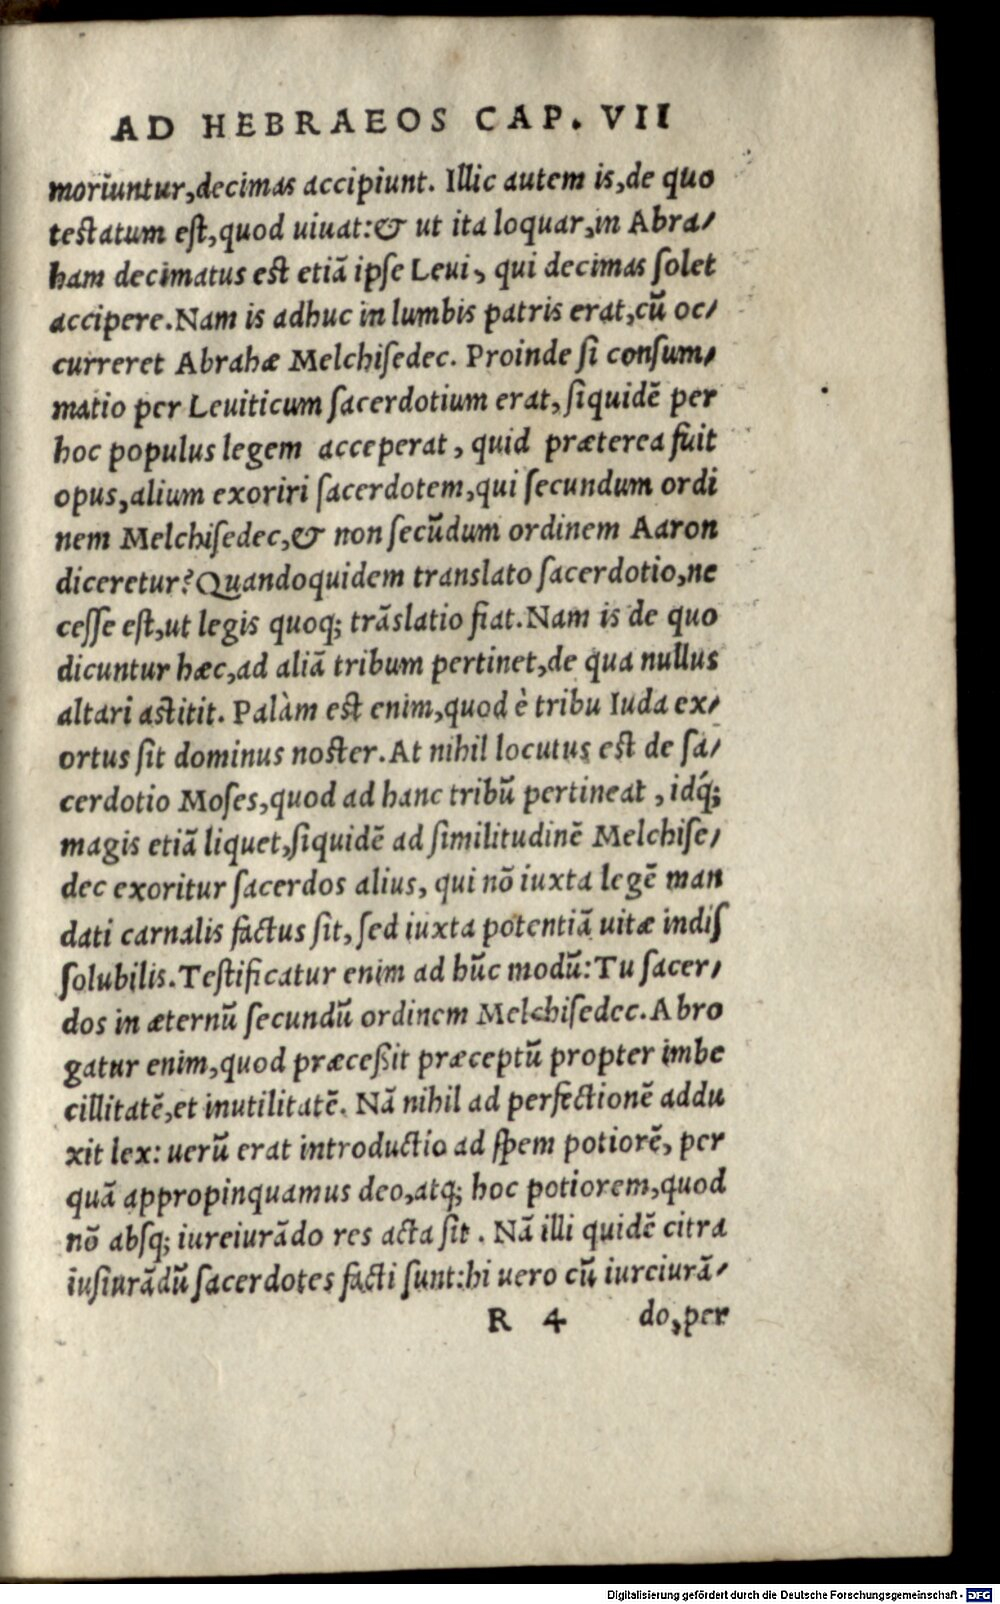 AD HEBRAEOS CAP. VII
moriuntur,decimas accipiunt. Illic autem is,de quo
testatum eſt,quod uiuat:& ut ita loquar,in Abra/
ham decimatus est etiā ipſe Leui, qui decimas ſolet
accipere.Nam is adhuc in lumbis patris erat,cū oc/
curreret Abrahæ Melchiſedec. Proinde ſi conſum/
matio per Leuiticum ſacerdotium erat,ſiquidē per
hoc populus legem acceperat, quid præterea fuit
opus,alium exoriri ſacerdotem,qui ſecundum ordi
nem Melchiſedec,& non ſecūdum ordinem Aaron
diceretur?Quandoquidem translato ſacerdotio,ne
ceſſe eſt,ut legis quoq; trāslatio fiat.Nam is de quo
dicuntur hæc,ad aliā tribum pertinet,de qua nullus
altari astitit. Palàm est enim,quod è tribu Iuda ex/
ortus ſit dominus noſter.At nihil locutus est de ſa/
cerdotio Moſes,quod ad hanc tribū pertineat, idq́;
magis etiā liquet,ſiquidē ad ſimilitudinē Melchiſe/
dec exoritur ſacerdos alius, qui nō iuxta legē man
dati carnalis factus ſit, ſed iuxta potentiā uitæ indiſ
ſolubilis.Teſtificatur enim ad hūc modū:Tu ſacer/
dos in æternū ſecundū ordinem Melchiſedec.Abro
gatur enim,quod præceßit præceptū propter imbe
cillitatē,et inutilitatē. Nā nihil ad perfectionē addu
xit lex: uerū erat introductio ad ſpem potiorē, per
quā appropinquamus deo,atq; hoc potiorem,quod
nō abſq; iureiurādo res acta ſit. Nā illi quidē citra
iuſiurādū ſacerdotes facti ſunt:hi uero cū iureiurā/
R 4 do,per
Digitalisierung gefördert durch die Deutsche Forschungsgemeinschaft - DFG